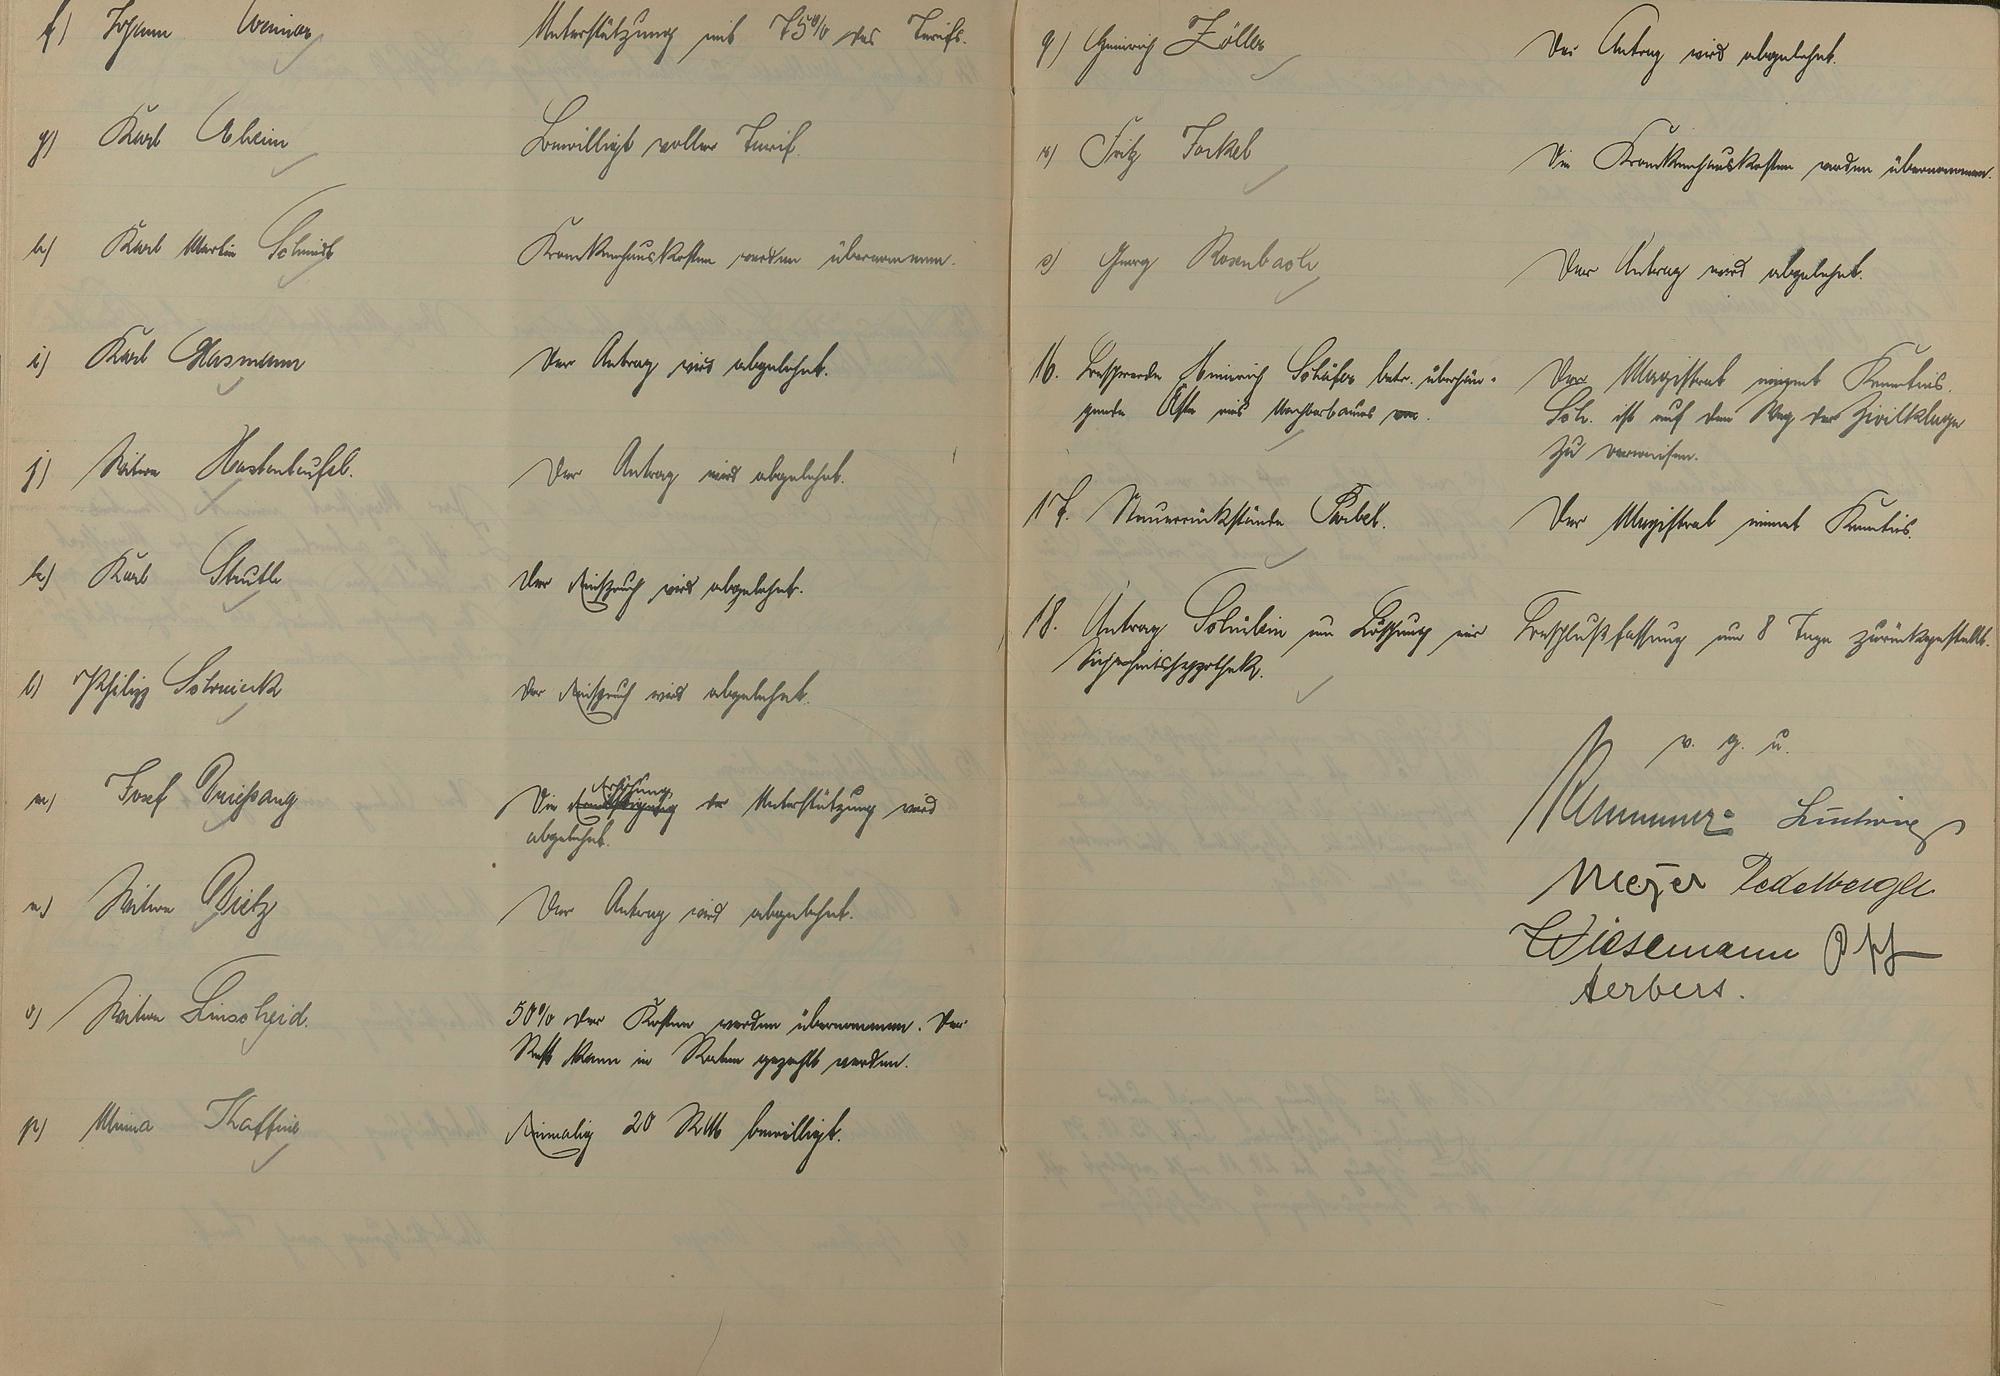 f) Johann Weimar Unterstützung mit 75% des Tarifs.
g) Karl Aheim Bewilligt voller Tarif.
h) Karl Martin Schmidt Krankenhauskosten werden übernommen.
i) Karl Glasmann Der Antrag wird abgelehnt.
j) Witwe Hastenteufel. Der Antrag wird abgelehnt.
k) Karl Struth Der Einspruch wird abgelehnt.
l) Philipp Der Einspruch wird abgelehnt.
m) Josef Driessang Die Erhöhung der Unterstützung wird
abgelehnt.
n) Witwe Dietz Der Antrag wird abgelehnt.
o) Witwe Linscheid. 50% der Kosten werden übernommen. Der
Rest kann in Raten gezahlt werden.
p) Minna Einmalig 20 RM bewilligt.
q) Heinrich Zöller Der Antrag wird abgelehnt.
r) Fritz Jockel Die Krankenhauskosten werden übernommen.
s) Georg Rosenbach Der Antrag wird abgelehnt.
16. Beschwerde Heinrich Schäfer betr. überhän- Der Magistrat nimmt Kenntnis.
gende Äste eines Nachbarbaumes. Sch. ist auf den Weg der Zivilklage
zu verweisen.
17. Steuerrückstände Göbel. Der Magistrat nimmt Kenntnis.
18. Antrag Schüblin um Löschung einer Beschlußfassung um 8 Tage zurückgestellt.
Sicherheitshypothek.
v. g. u.
Ludwig
Meyer
Wiesemann
Herbers.